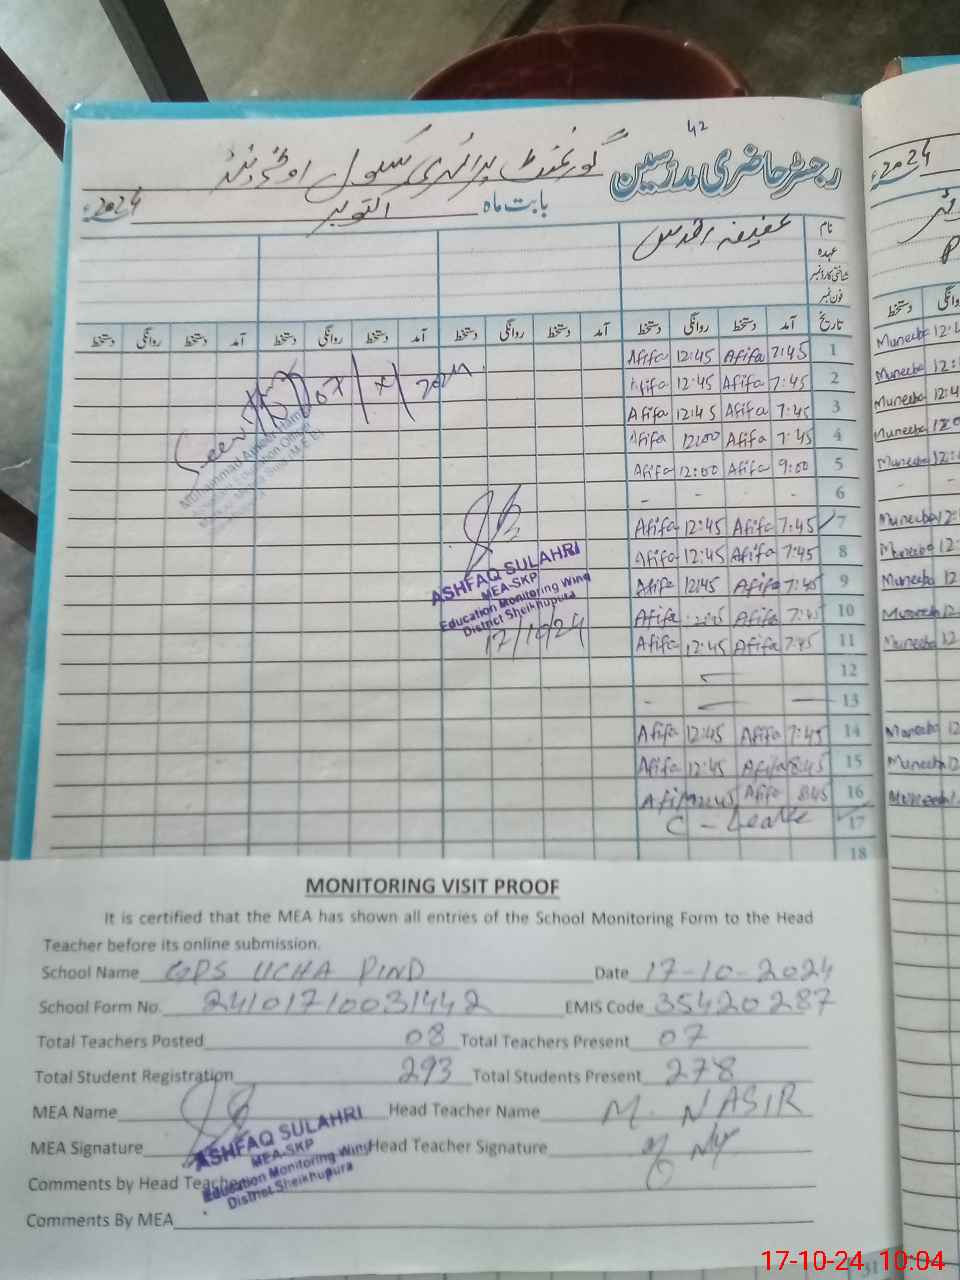 42
رجسٹر حاضری مدرسین گورنمنٹ پرائمری سکول اوچا پنڈ
بابت ماہ اکتوبر 2024ء
نام عفیفہ اقدس
عہدہ
شناختی کارڈ نمبر
فون نمبر
تاریخ آمد دستخط روانگی دستخط آمد دستخط روانگی دستخط آمد دستخط روانگی دستخط آمد دستخط روانگی دستخط
Afifa 12:45 Afifa 7:45 1
Afifa 12:45 Afifa 7:45 2
Afifa 12:45 Afifa 7:45 3
Afifa 12:00 Afifa 7:45 4
Afifa 12:00 Afifa 9:00 5
- - - - 6
Afifa 12:45 Afifa 7:45 7
Afifa 12:45 Afifa 7:45 8
Afifa 12:45 Afifa 7:45 9
Afifa 12:45 Afifa 7:45 10
Afifa 12:45 Afifa 7:45 11
12
13
Afifa 12:45 Afifa 7:45 14
Afifa 12:45 Afifa 8:45 15
Afifa 12:45 Afifa 8:45 16
C - Leave 17
18
Seen
Education Officer
ASHFAQ SULAHRI
MEA-SKP
Education Monitoring Wing
District Sheikhupura
17/10/24
2024ء
Muneeba 12:4
Muneeba 12:
Muneeba 12:4
Muneeba 12:0
Muneeba 12:
Muneeba 12:
Muneeba 12:
Muneeba 12
Muneeba 12
Muneeba 12
Muneeba 12
Muneeba 12
Muneeba 12
MONITORING VISIT PROOF
It is certified that the MEA has shown all entries of the School Monitoring Form to the Head
Teacher before its online submission.
School Name GPS UCHA PIND Date 17-10-2024
School Form No. 24101710031442 EMIS Code 35420287
Total Teachers Posted 08 Total Teachers Present 07
Total Student Registration 293 Total Students Present 278
MEA Name Head Teacher Name M. NASIR
MEA Signature Head Teacher Signature
ASHFAQ SULAHRI
MEA-SKP
Education Monitoring Wing
District Sheikhupura
Comments by Head Teacher
Comments By MEA
31
17-10-24 10:04